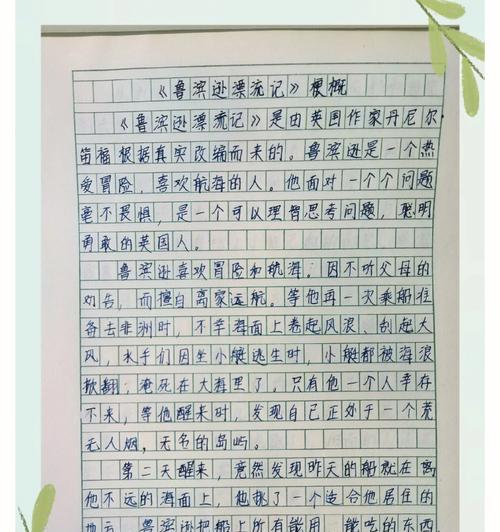 《鲁滨逊漂流记》梗概
《鲁滨逊漂流记》是由英国作家丹尼尔·
笛福根据真实改编而来的。鲁滨逊是一个热
爱冒险，喜欢航海的人。他面对一个个问题
毫不畏惧，是一个可以理智思考问题，聪明
勇敢的英国人。
鲁滨逊喜欢冒险和航海。因不听父母的
劝告，而擅自离家远航。等他再一次乘船往
各去非洲时，不幸海面上卷起风浪、刮起大
风，水手们因坐小艇逃生时，小艇都被海浪
掀翻；淹死在大海里了，只有他一个人幸存
下来，等他醒来时，发现自己正处于一个荒
无人烟，无名的岛屿。
第二天醒来，竟然发现昨天的船就在离
他不远的海面上，他挑了一个适合他居住的
地方，鲁滨逊把船上所有能用、能吃的东西